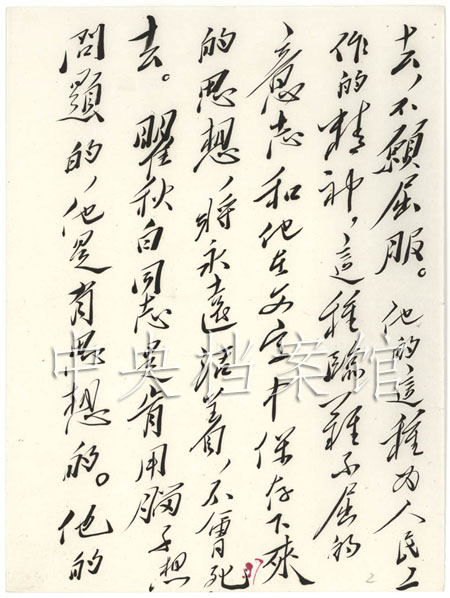 去，不願屈服。他的這種为人民工
作的精神，這種臨難不屈的
意志和他在文字中保存下來
的思想，將永遠活着，不會死
去。瞿秋白同志是肯用腦子想
問題的，他是有思想的。他的
中央档案馆
2